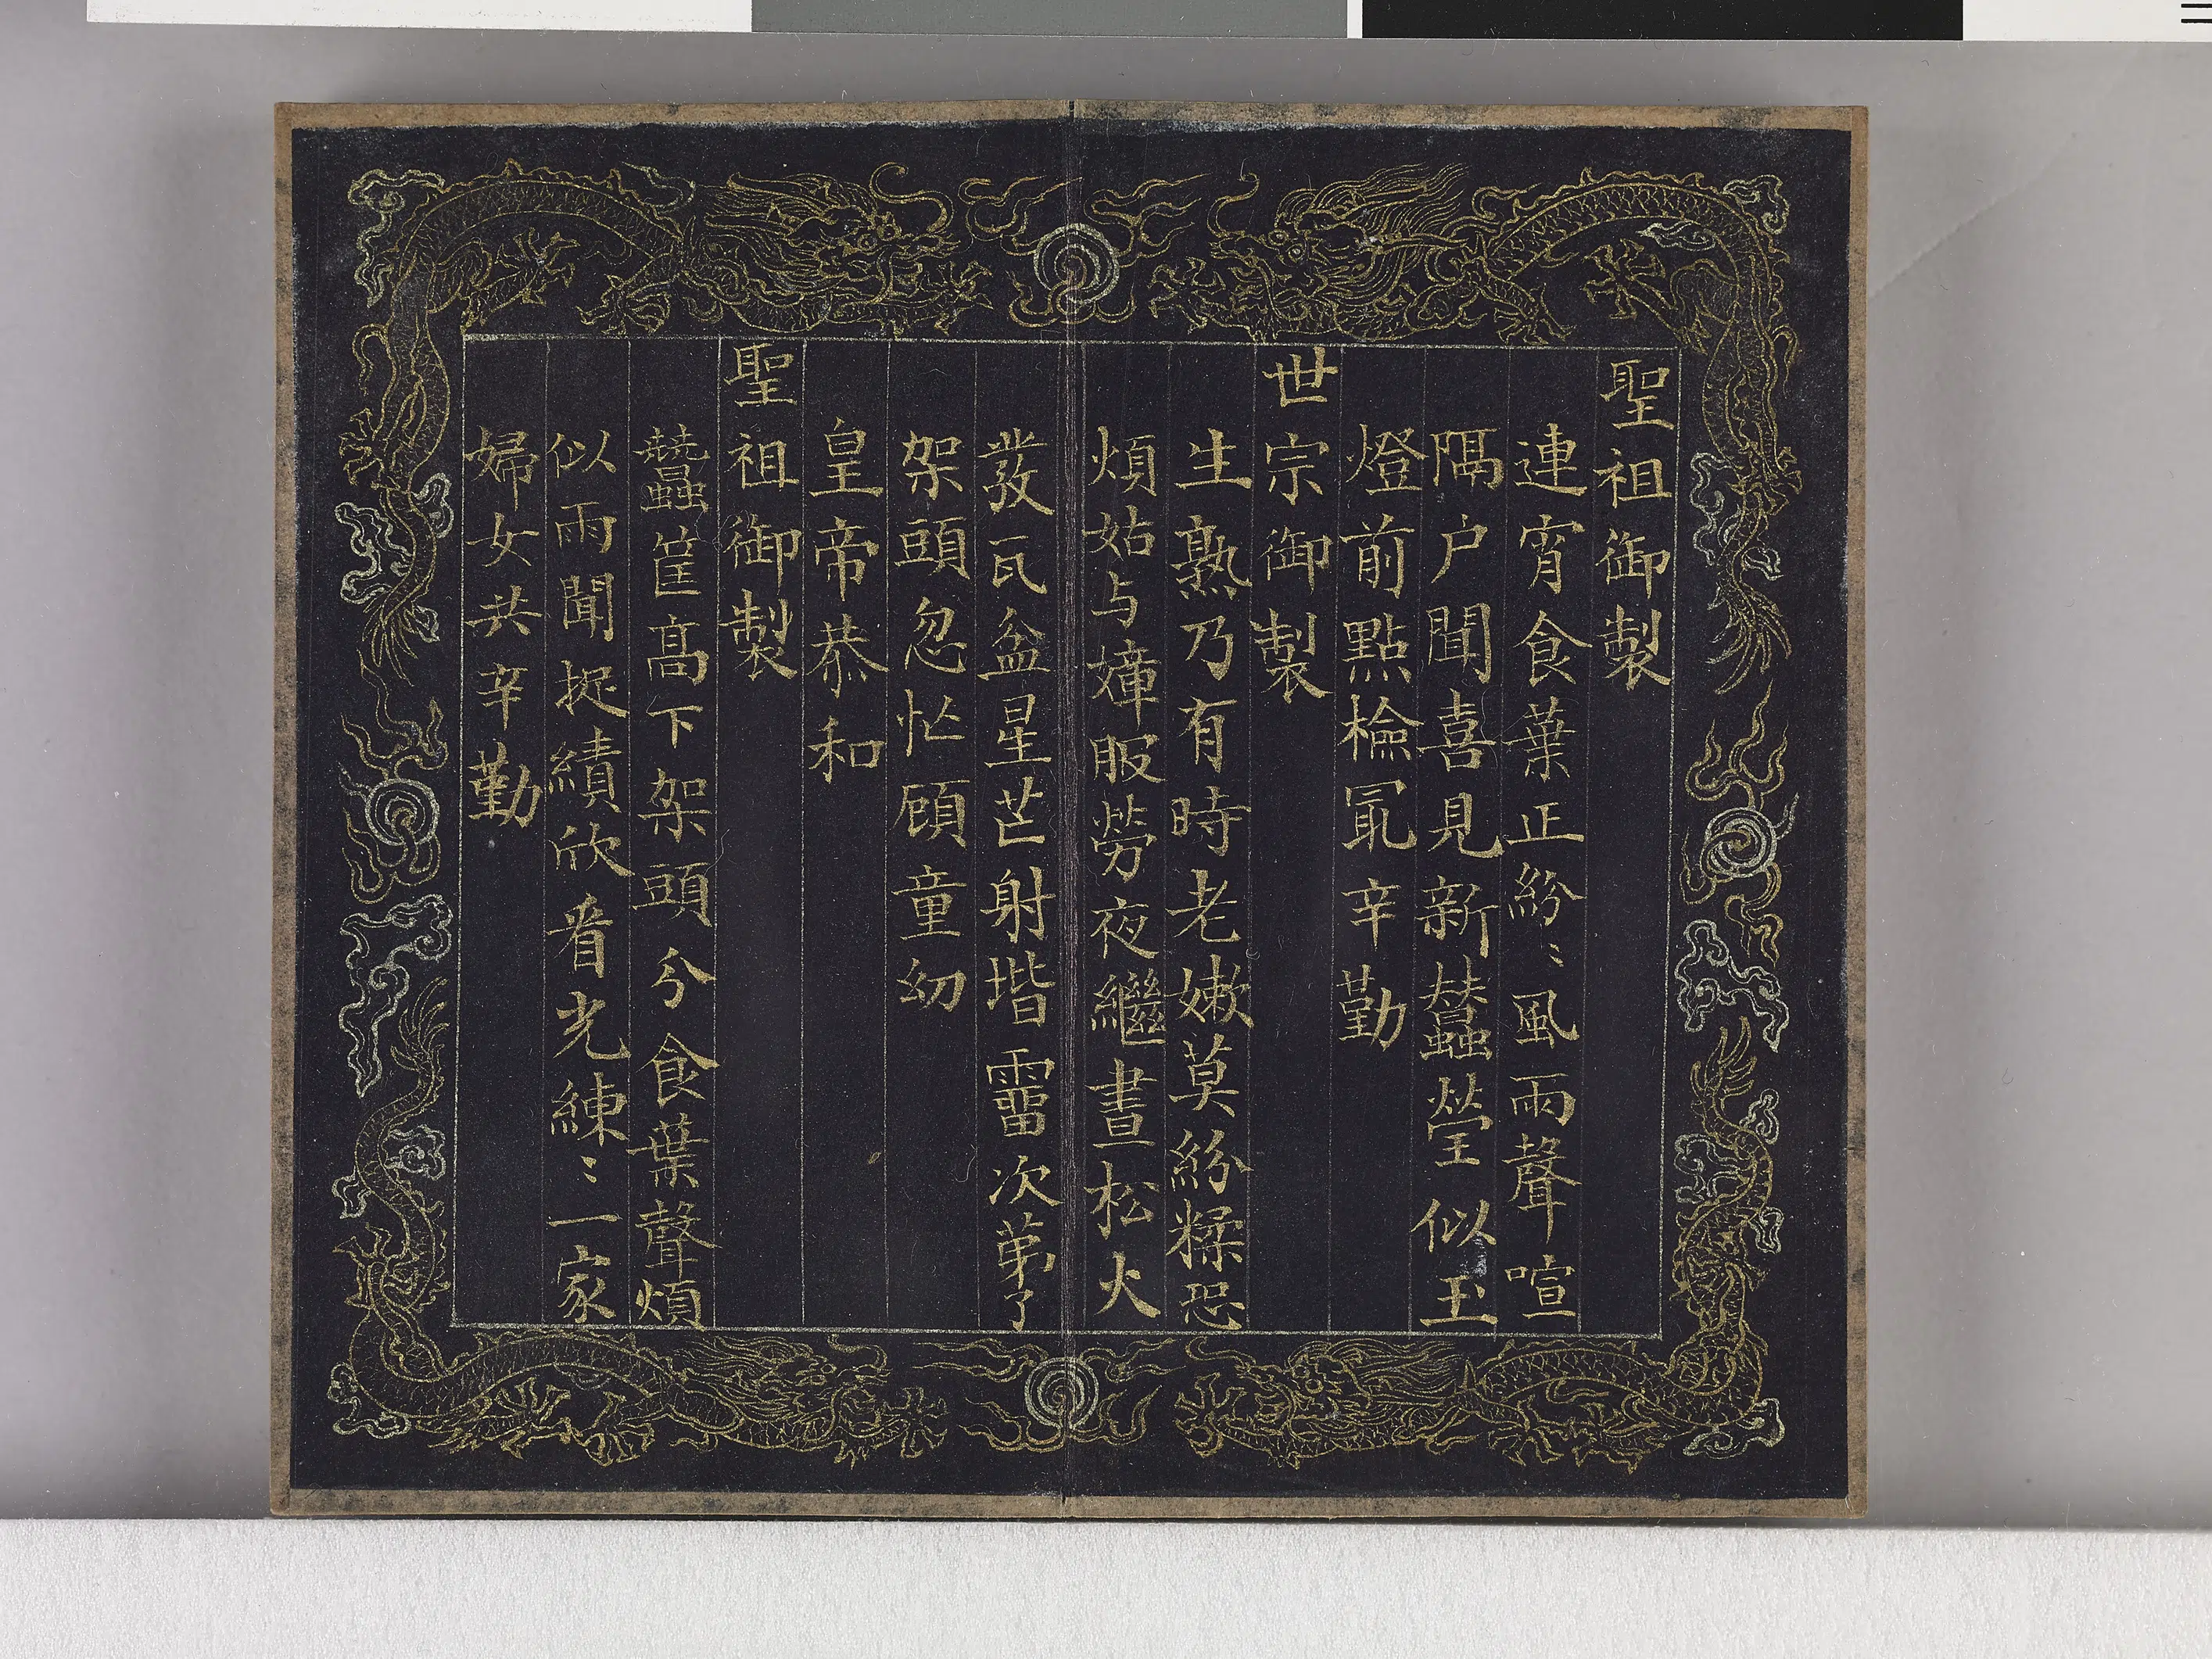 聖祖御製
連宵食葉正紛〻風雨聲喧
隔户聞喜見新蠶瑩似玉
燈前點檢冣辛勤
世宗御製
生熟乃有時老嫩莫紛糅恐
煩姑与嫜服勞夜繼晝松火
發瓦盆星芒射堦霤次苐了
架頭忽忙顧童幼
皇帝恭和
聖祖御製
蠶筐高下架頭分食葉聲煩
似雨聞捉績欣看光練〻一家
婦女共辛勤